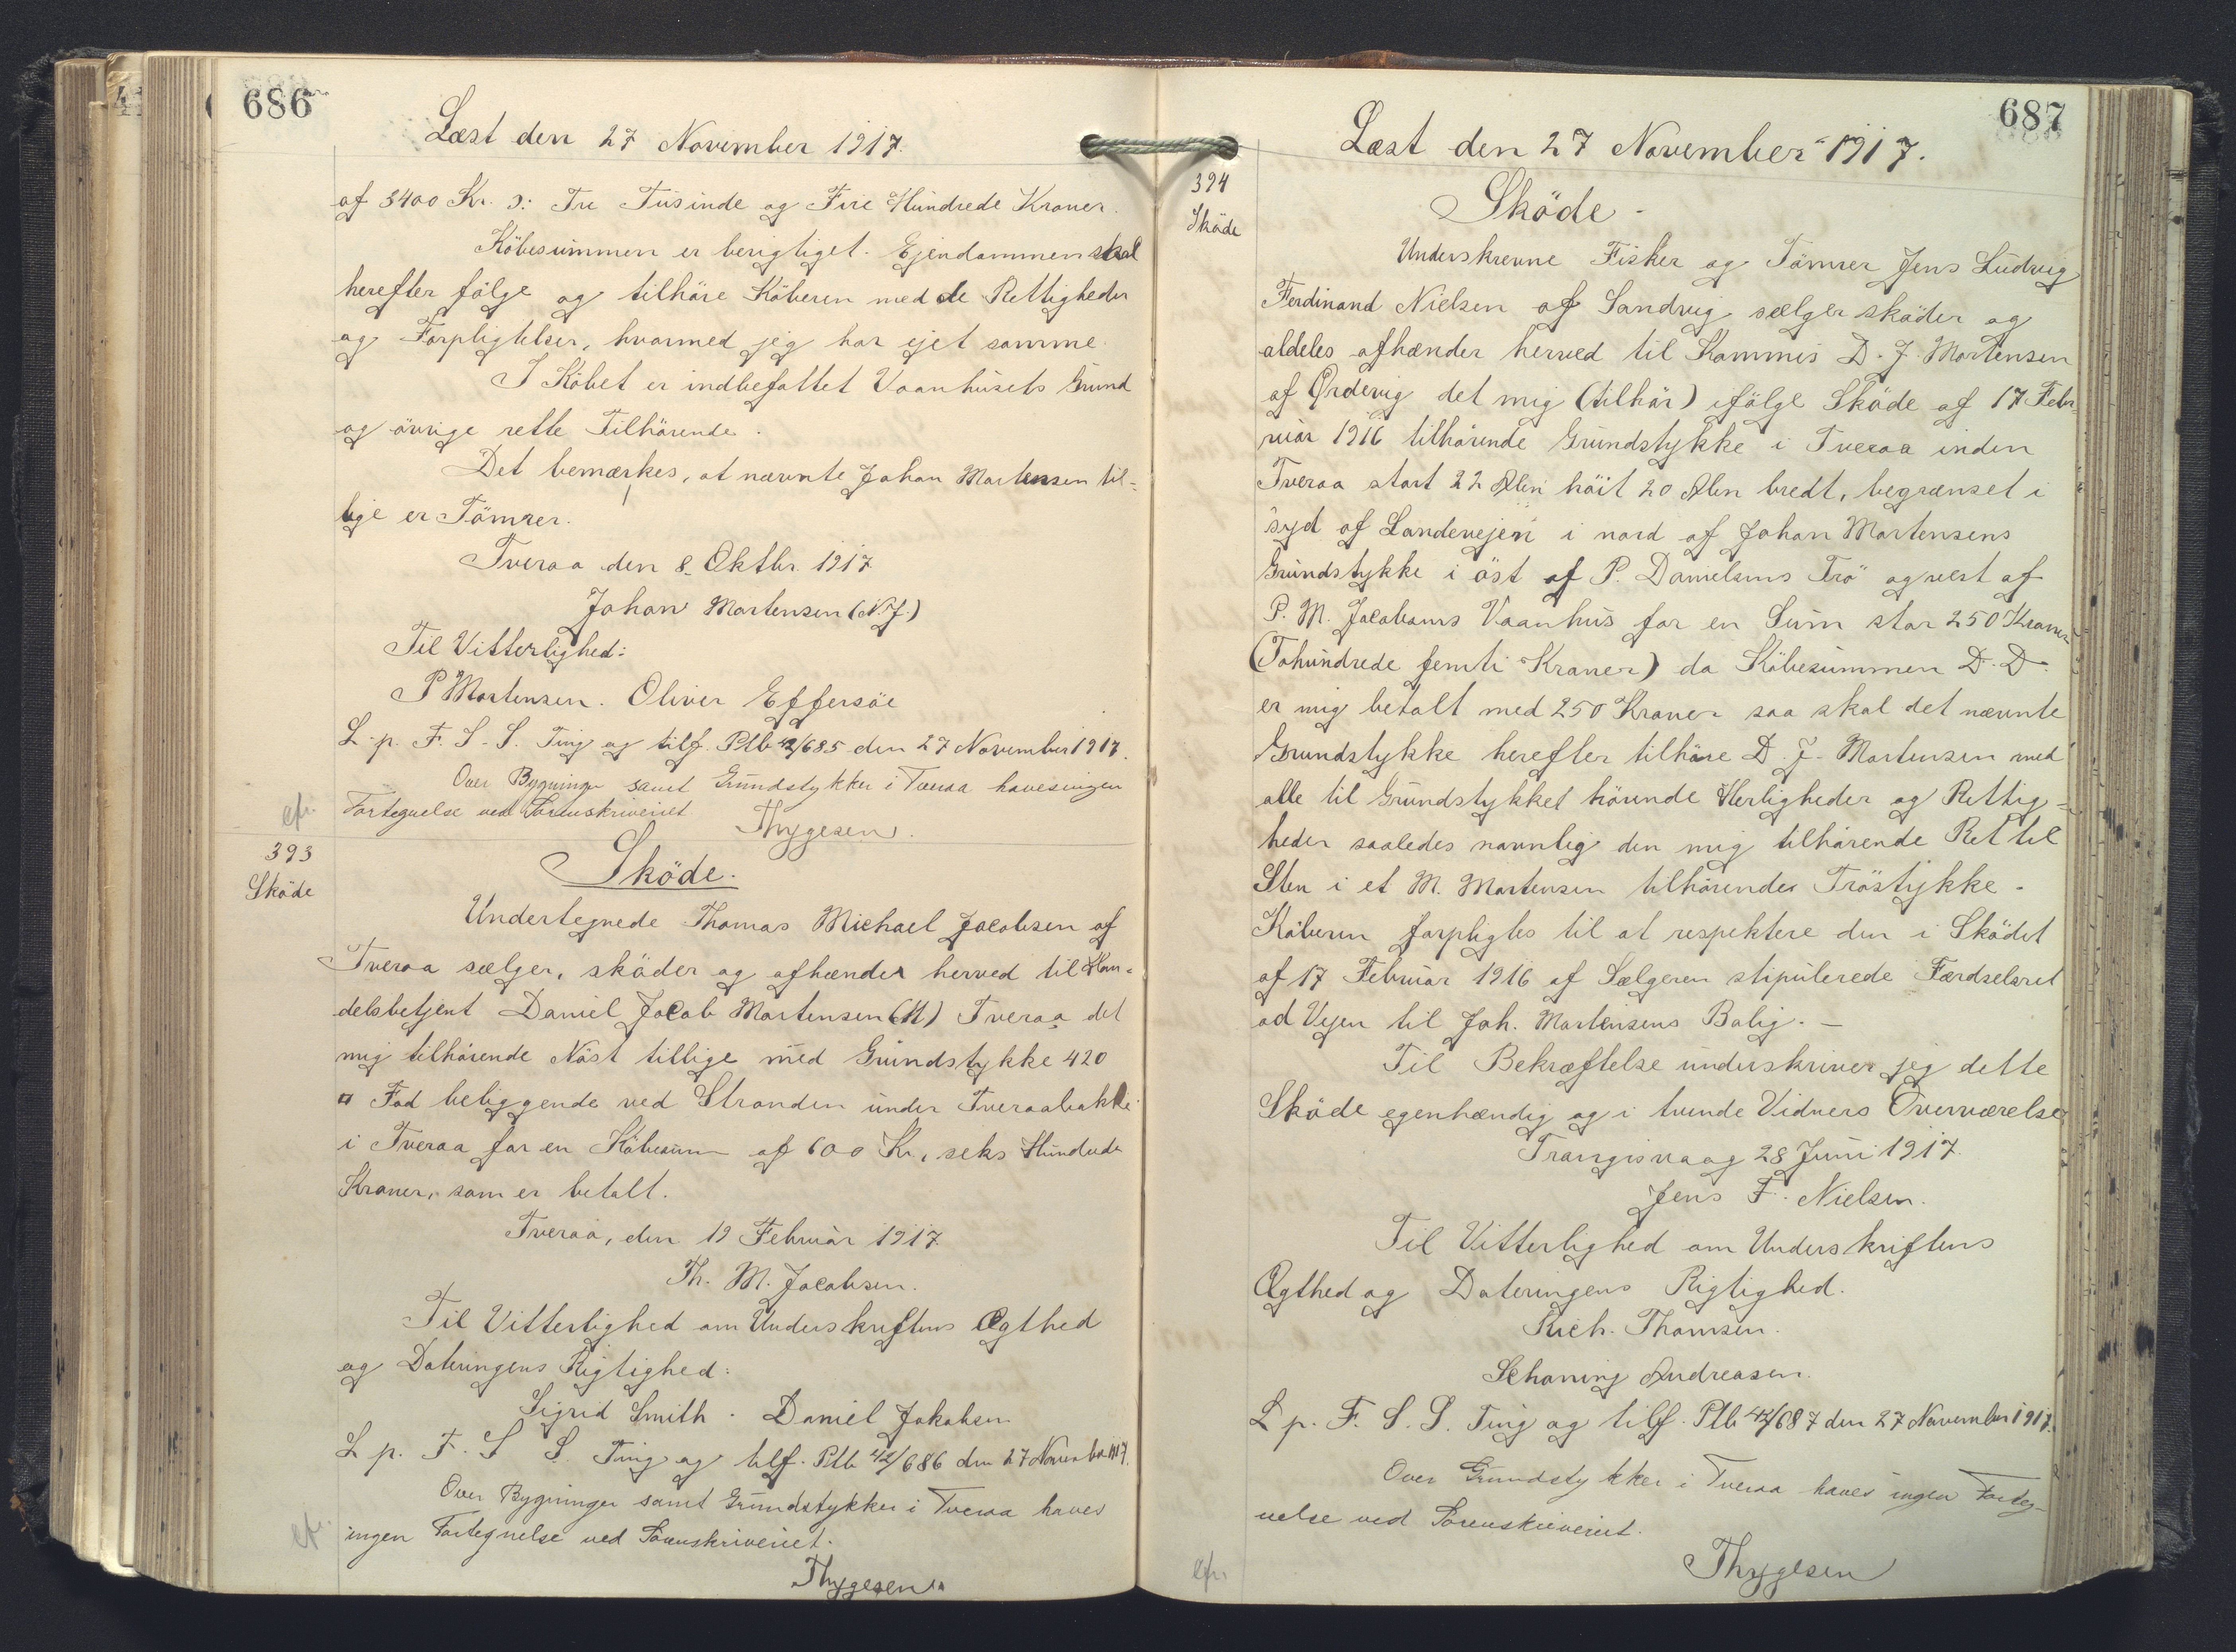 686
Læst den 27 November 1917.
af 3400 Kr. ɔ: Tre Tusinde og Fire Hundrede Kroner.
Köbesummen er berigtiget. Ejendommen skal
herefter følge og tilhöre Köberen med de Rettigheder
og Forpligtelser, hvormed jeg har ejet samme
I Köbet er indbefattet Vaanhusets Grund
og övrige rette Tilhörende.
Det bemærkes, at nævnte Johan Mortensen til-
lige er Tömrer.
Tveraa den 8. Oktbr. 1917
Johan Mortensen (N.J.)
Til Vitterlighed:
P Mortensen. Oliver Effersöe
L. p. F. S. S. Ting og tilf. Ptlb 42/685 den 27 November 1917.
Over Bygninger samt Grundstykker i Tveraa haves ingen
Fortegnelse ved Sorenskriveriet
Thygesen.
cfr.
393
Sköde
Sköde.
Undertegnede Thomas Michael Jacobsen af
Tveraa sælger, sköder og afhænder herved til Han-
delsbetjent Daniel Jacob Mortensen (M) Tveraa det
mig tilhörende Nöst tillige med Grundstykke 420
□ Fod beliggende ved Stranden under Tveraabakke
i Tveraa for en Köbesum af 600 Kr, seks Hundrede
Kroner, som er betalt.
Tveraa, den 19 Februar 1917
Th. M. Jacobsen.
Til Vitterlighed om Underskriftens Ægthed
og Dateringens Rigtighed:
Sigrid Smith. Daniel Jakobsen
L p. F. S S. Ting og tilf. Ptlb 42/686 den 27 November 1917.
Over Bygninger samt Grundstykker i Tveraa haves
ingen Fortegnelse ved Sorenskriveriet.
Thygesen.
cfr.
687
Læst den 27 November 1917.
394
Sköde
Sköde
Underskrevne Fisker og Tömrer Jens Ludvig
Ferdinand Nielsen af Sandvig sælger sköder og
aldeles afhænder herved til Kommis D. J. Mortensen
af Ördevig det mig (tilhör) ifölge Sköde af 17 Febr
ruar 1916 tilhörende Grundstykke i Tveraa inden
Tveraa stort 22 Alen höit 20 Alen bredt, begrænset i
syd af Landevejen i nord af Johan Mortensens
Grundstykke i öst af P. Danielsens Trö og vest af
P. M. Jacobsens Vaanhus for en Sum stor 250 Kroner
(Tohundrede femti Kroner) da Köbesummen D. D.
er mig betalt med 250 Kroner saa skal det nævnte
Grundstykke herefter tilhöre D. J. Mortensen med
alle til Grundstykket hörende Herligheder og Rettig-
heder saaledes navnlig den mig tilhörende Ret til
Sten i et M. Mortensen tilhörendes Tröstykke.
Köberen forpligtes til at respektere den i Sködet
af 17 Februar 1916 af Sælgeren stipulerede Færdselsret
ad Vejen til Joh. Mortensens Bolig. —
Til Bekræftelse underskriver jeg dette
Sköde egenhændig og i tvende Vidners Overværelse
Trangisvaag 28 Juni 1917.
Jens F. Nielsen.
Til Vitterlighed om Underskriftens
Ægthed og Dateringens Rigtighed.
Rich. Thomsen.
Schoning Andreasen.
L p. F. S. S. Ting og tilf. Ptlb 42/687 den 27 November 1917.
Over Grundstykker i Tveraa haves ingen Forteg-
nelse ved Sorenskriveriet.
Thygesen
cfr.